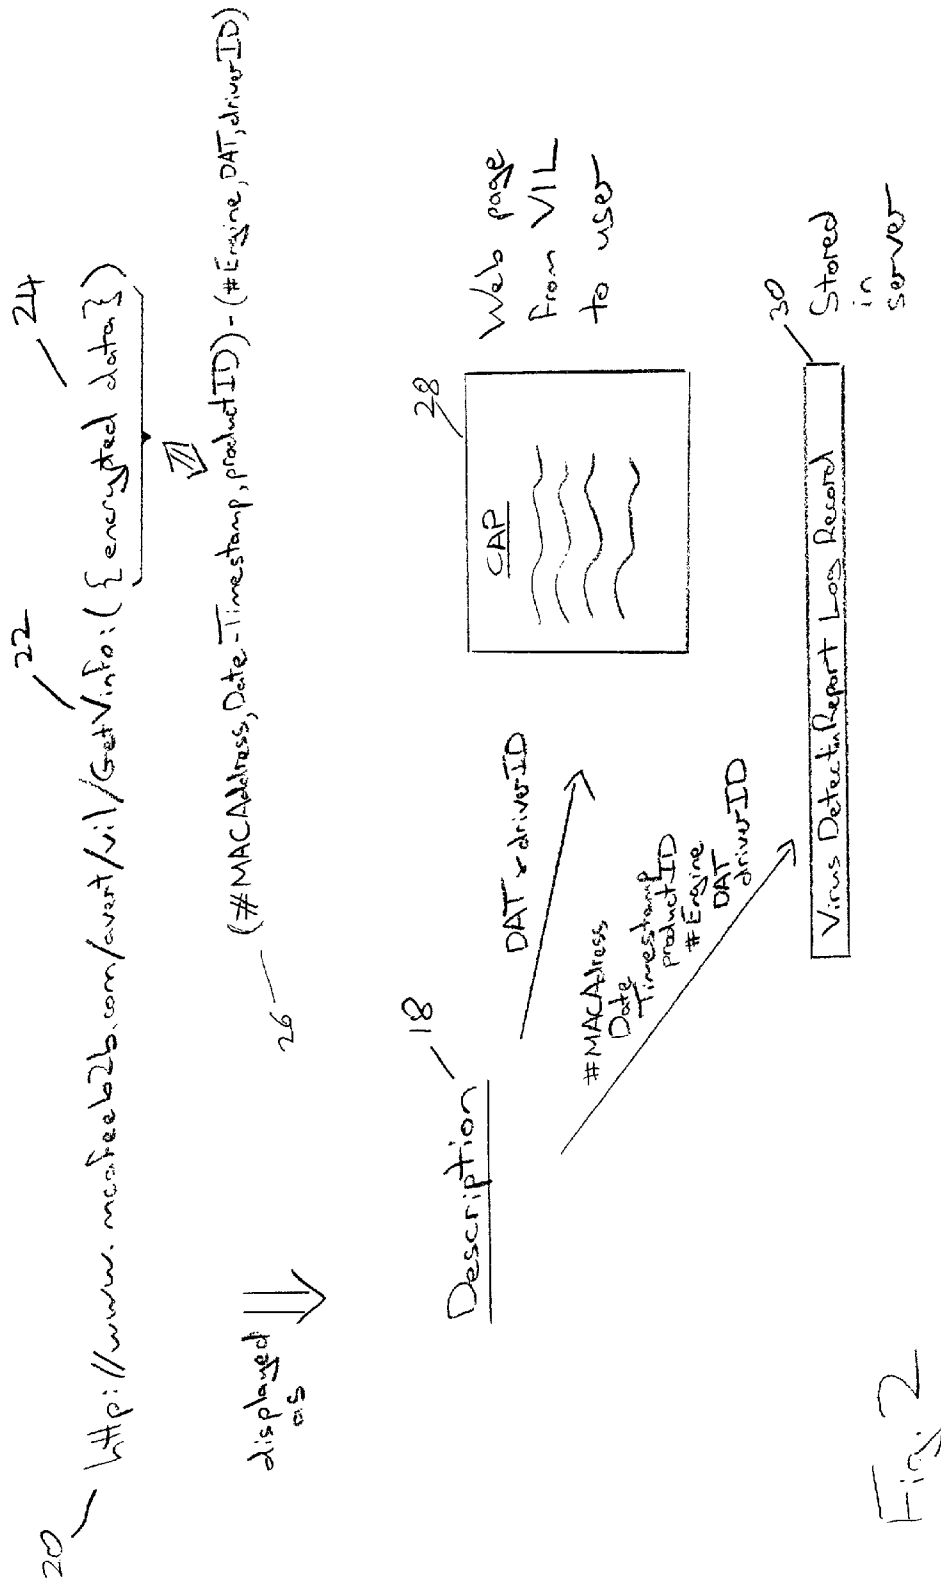 20
http://www.mcafeeb2b.com/avert/vil/GetVinfo:({encrypted data})
22
24
26
(#MACAddress,Date-Timestamp,productID)-(#Engine,DAT,driverID)
displayed
as
Description
18
DAT & driverID
#MACAdress
Date
Timestamp
productID
#Engine
DAT
driverID
28
CAP
Web page
from VIL
to user
30
Virus Detectn Report Log Record
Stored
in
server
Fig. 2